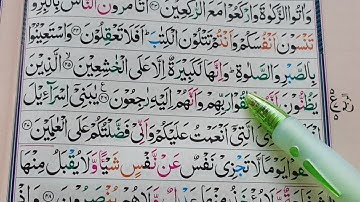 وَاٰتُوا الزَّكٰوةَ وَارْكَعُوْا مَعَ الرّٰكِعِيْنَ ۴۳ اَتَاْمُرُوْنَ النَّاسَ بِالْبِرِّ وَ
تَنْسَوْنَ اَنْفُسَكُمْ وَاَنْتُمْ تَتْلُوْنَ الْكِتٰبَ ؕ اَفَلَا تَعْقِلُوْنَ ۴۴ وَاسْتَعِيْنُوْا
بِالصَّبْرِ وَالصَّلٰوةِ ؕ وَاِنَّهَا لَكَبِيْرَةٌ اِلَّا عَلَى الْخٰشِعِيْنَ ۴۵ الَّذِيْنَ
يَظُنُّوْنَ مُّلٰقُوْا رَبِّهِمْ وَاَنَّهُمْ اِلَيْهِ رٰجِعُوْنَ ۴۶ يٰبَنِيْٓ اِسْرَآءِيْلَ
الَّتِيْٓ اَنْعَمْتُ عَلَيْكُمْ وَاَنِّيْ فَضَّلْتُكُمْ عَلَى الْعٰلَمِيْنَ ۴۷
يَوْمًا لَّا تَجْزِيْ نَفْسٌ عَنْ نَّفْسٍ شَيْـًٔا وَّلَا يُقْبَلُ مِنْهَا